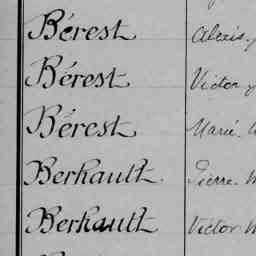 Bérest Alexis
Bérest Victor
Bérest Marie
Berhault Pierre M
Berhault Victor M